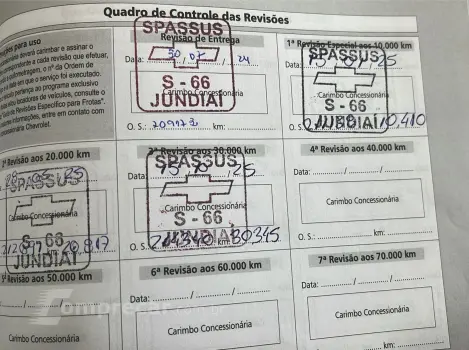 Quadro de Controle das Revisões
Revisão de Entrega
Data: 30 / 07 / 24
SPASSUS
S - 66
JUNDIAÍ
Carimbo Concessionária
O. S.: 209173 km:
1ª Revisão Especial aos 10.000 km
SPASSUS
S - 66
JUNDIAÍ
Carimbo Concessionária
10.410
ções para uso
deverá carimbar e assinar o
a cada revisão que efetuar,
ometragem, o nº da Ordem de
data em que o serviço foi executado.
pertença ao programa exclusivo
locadores de veículos, consulte o
de Revisões Específico para Frotas".
informações, entre em contato com
Chevrolet.
Revisão aos 20.000 km
SPASSUS
S - 66
JUNDIAÍ
Carimbo Concessionária
Revisão aos 30.000 km
Data: / 25
SPASSUS
S - 66
JUNDIAÍ
Carimbo Concessionária
O. S. km: 30.345
4ª Revisão aos 40.000 km
Data: / /
Carimbo Concessionária
O. S.: km:
Revisão aos 50.000 km
Carimbo Concessionária
6ª Revisão aos 60.000 km
Data: / /
Carimbo Concessionária
7ª Revisão aos 70.000 km
Data: / /
Carimbo Concessionária
km: